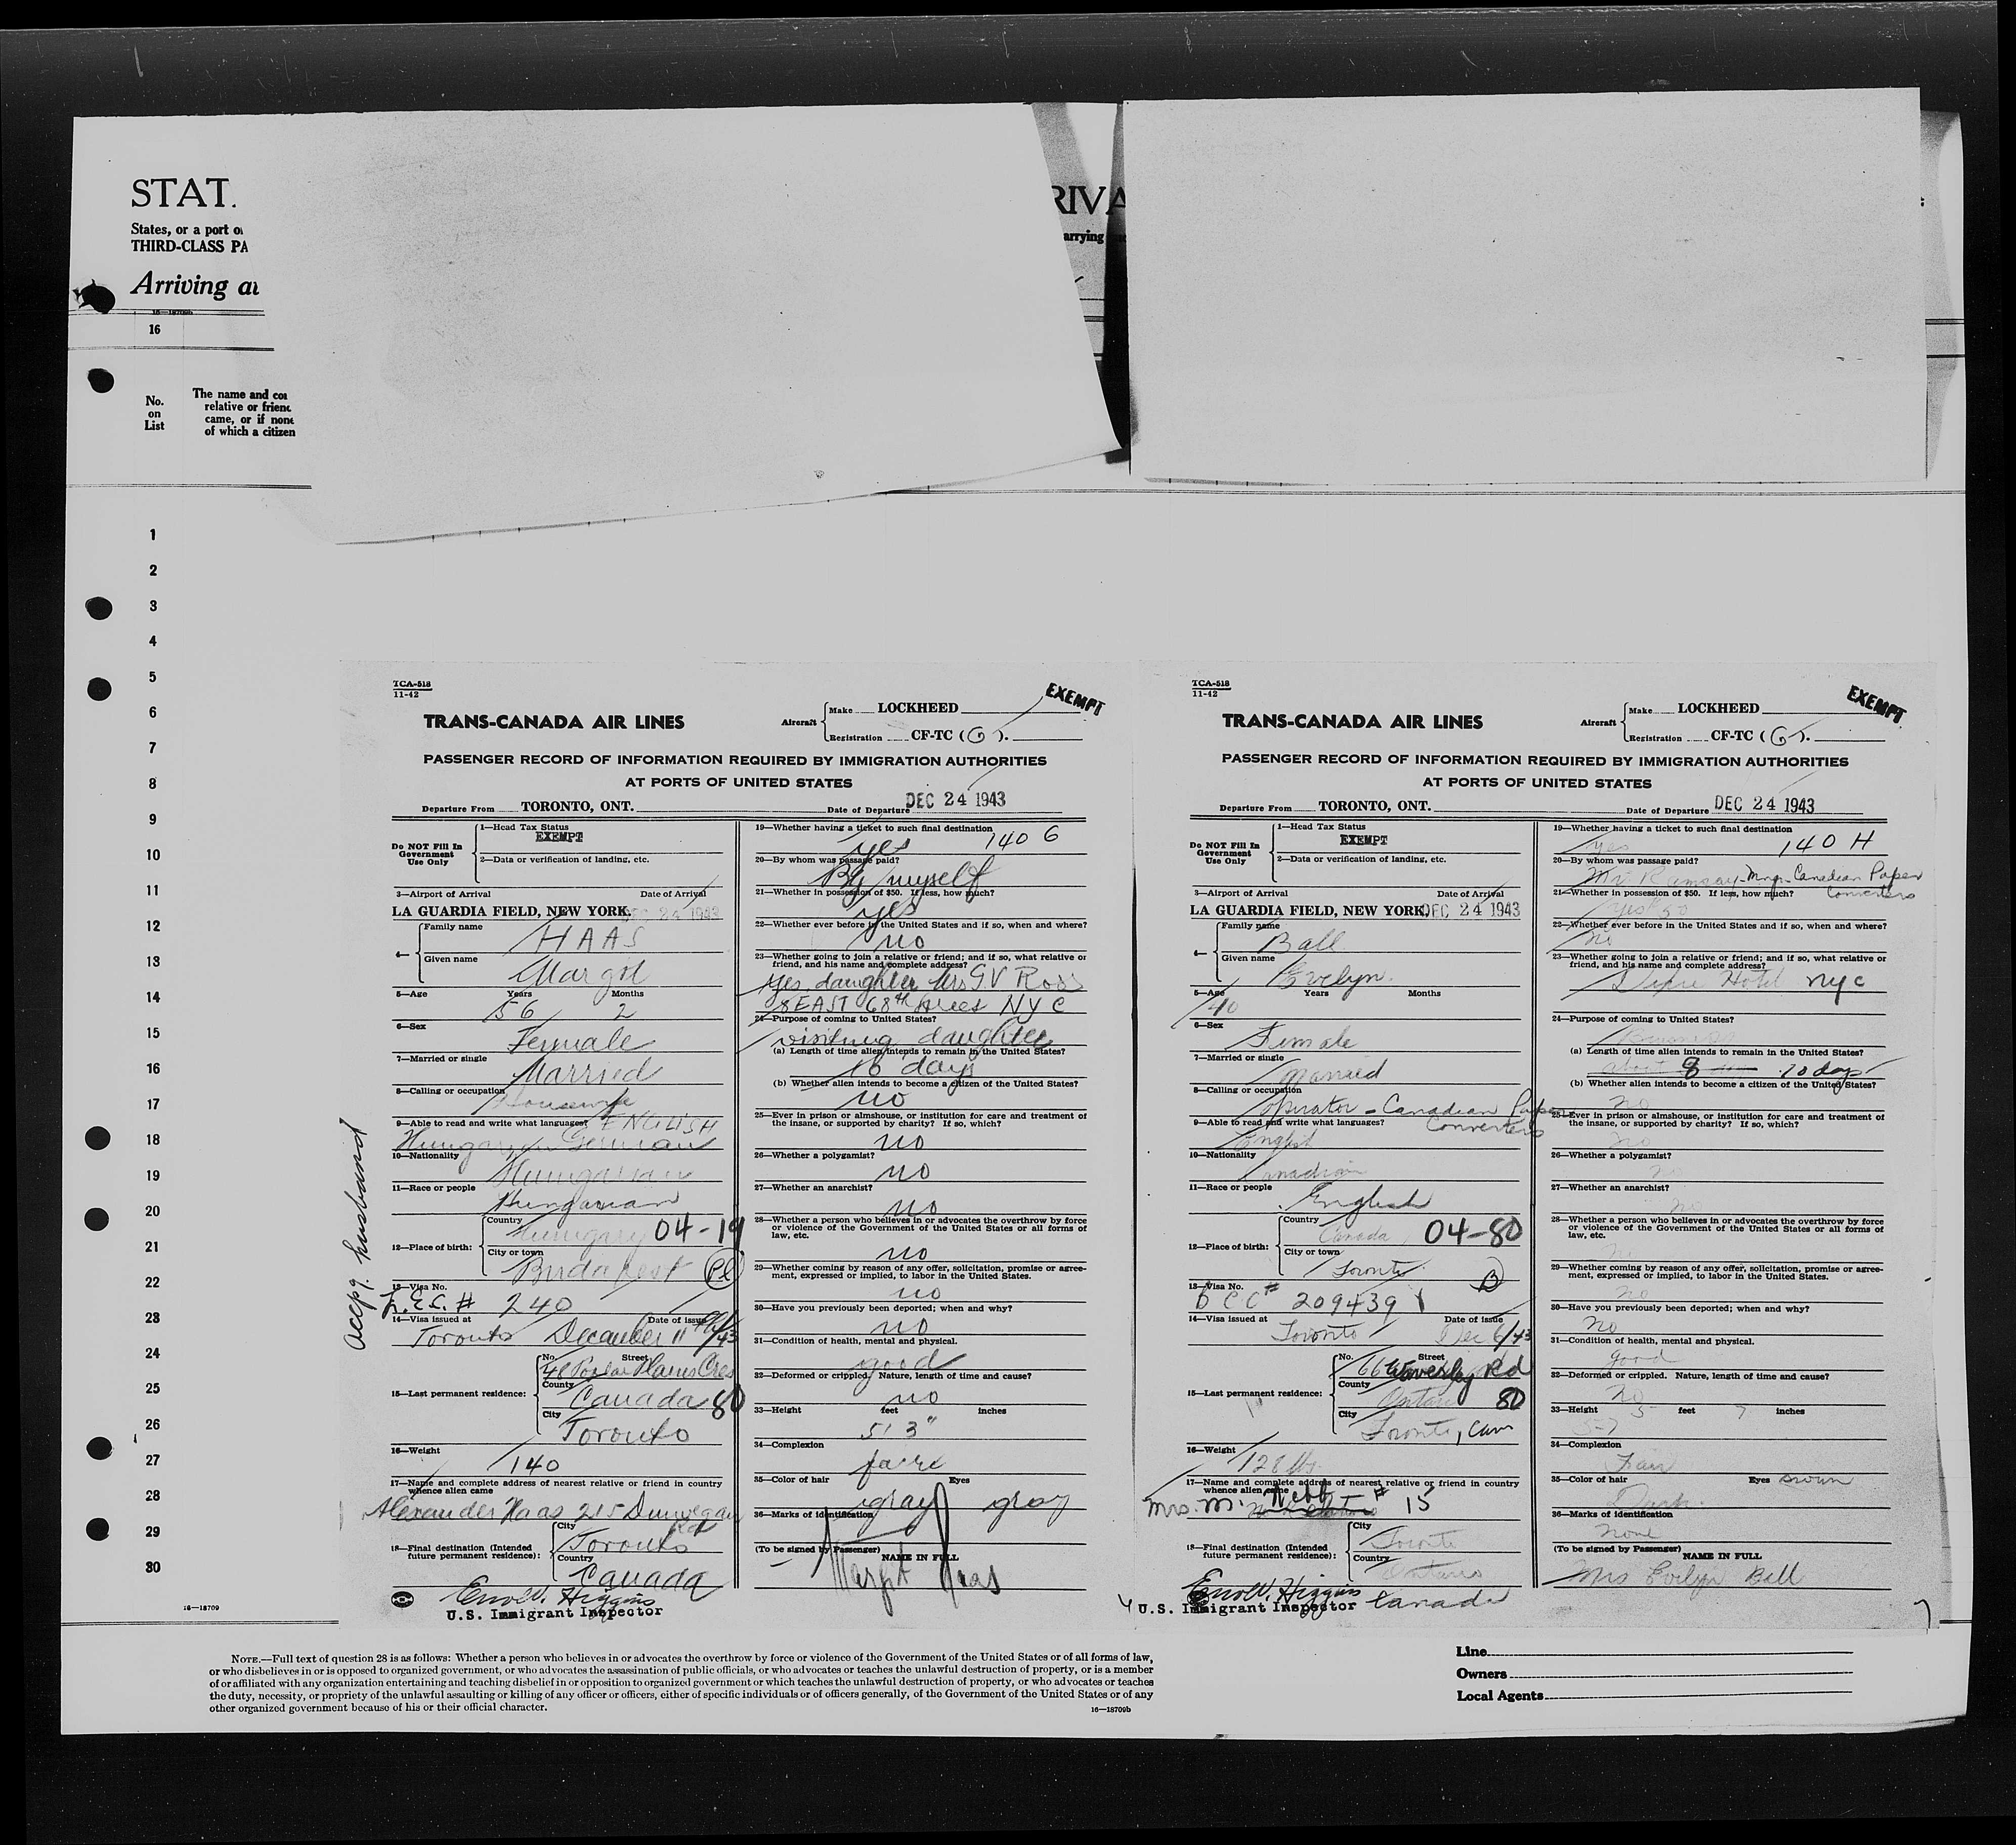 STAT
States, or a port o
THIRD-CLASS PA
Arriving a
RIVA
arrying
16
No.
on
List
The name and co
relative or frien
came, or if none
of which a citizen
1
2
3
4
5
6
7
8
9
10
11
12
13
14
15
16
17
18
19
20
21
22
23
24
25
26
27
28
29
30
16—18709
Accpg. husband
TCA-518
11-42
EXEMPT
TRANS-CANADA AIR LINES
Aircraft
Make LOCKHEED
Registration CF-TC (G).
PASSENGER RECORD OF INFORMATION REQUIRED BY IMMIGRATION AUTHORITIES
AT PORTS OF UNITED STATES
Departure From TORONTO, ONT. Date of Departure DEC 24 1943
Do NOT Fill In
Government
Use Only
1—Head Tax Status
EXEMPT
2—Data or verification of landing, etc.
3—Airport of Arrival Date of Arrival
LA GUARDIA FIELD, NEW YORK DEC 24 1943
4— Family name HAAS
Given name Margit
5—Age Years Months
56 2
6—Sex
Female
7—Married or single
Married
8—Calling or occupation
Housewife
9—Able to read and write what languages? ENGLISH
Hungarian German
10—Nationality
Hungarian
11—Race or people
Hungarian
12—Place of birth:
Country
Hungary 04-19
City or town
Budapest
13—Visa No.
240
14—Visa issued at Date of issue
Toronto December 11th/43
15—Last permanent residence:
No. Street
48 Poplar Plains Cres
County
Canada 80
City
Toronto
16—Weight
140
17—Name and complete address of nearest relative or friend in country
whence alien came
Alexander Haas 215 Dunvegan
Rd
18—Final destination (Intended
future permanent residence):
City
Toronto
Country
Canada
Errol W. Higgins
U.S. Immigrant Inspector
19—Whether having a ticket to such final destination
yes 140 G
20—By whom was passage paid?
By myself
21—Whether in possession of $50. If less, how much?
yes
22—Whether ever before in the United States and if so, when and where?
no
23—Whether going to join a relative or friend; and if so, what relative or
friend, and his name and complete address?
Yes, daughter Mrs G.V Ross
8 EAST 68th Street NYC
24—Purpose of coming to United States?
visiting daughter
(a) Length of time alien intends to remain in the United States?
10 days
(b) Whether alien intends to become a citizen of the United States?
no
25—Ever in prison or almshouse, or institution for care and treatment of
the insane, or supported by charity? If so, which?
no
26—Whether a polygamist?
no
27—Whether an anarchist?
no
28—Whether a person who believes in or advocates the overthrow by force
or violence of the Government of the United States or all forms of
law, etc.
no
29—Whether coming by reason of any offer, solicitation, promise or agree-
ment, expressed or implied, to labor in the United States.
no
30—Have you previously been deported; when and why?
no
31—Condition of health, mental and physical.
good
32—Deformed or crippled. Nature, length of time and cause?
no
33—Height feet inches
5' 3"
34—Complexion
faire
35—Color of hair Eyes
gray gray
36—Marks of identification
(To be signed by Passenger)
NAME IN FULL
Margit Haas
TCA-518
11-42
EXEMPT
TRANS-CANADA AIR LINES
Aircraft
Make LOCKHEED
Registration CF-TC (G).
PASSENGER RECORD OF INFORMATION REQUIRED BY IMMIGRATION AUTHORITIES
AT PORTS OF UNITED STATES
Departure From TORONTO, ONT. Date of Departure DEC 24 1943
Do NOT Fill In
Government
Use Only
1—Head Tax Status
EXEMPT
2—Data or verification of landing, etc.
3—Airport of Arrival Date of Arrival
LA GUARDIA FIELD, NEW YORK DEC 24 1943
4— Family name Ball
Given name Evelyn
5—Age Years Months
40
6—Sex
Female
7—Married or single
Married
8—Calling or occupation
operator - Canadian Paper
Converters
9—Able to read and write what languages?
English
10—Nationality
Canadian
11—Race or people
English
12—Place of birth:
Country
Canada 04-80
City or town
Toronto B
13—Visa No.
B C C # 209439
14—Visa issued at Date of issue
Toronto Dec 6/43
15—Last permanent residence:
No. Street
66 Waverley Rd
County
Ontario 80
City
Toronto, Can
16—Weight
128 lbs
17—Name and complete address of nearest relative or friend in country
whence alien came
Mrs. M. Webb # 15
18—Final destination (Intended
future permanent residence):
City
Toronto
Country
Ontario
Canada
Errol W. Higgins
U.S. Immigrant Inspector
19—Whether having a ticket to such final destination
yes 140 H
20—By whom was passage paid?
Mr Ramsay - Mngr. Canadian Paper
Converters
21—Whether in possession of $50. If less, how much?
yes $50
22—Whether ever before in the United States and if so, when and where?
no
23—Whether going to join a relative or friend; and if so, what relative or
friend, and his name and complete address?
Hotel NYC
24—Purpose of coming to United States?
(a) Length of time alien intends to remain in the United States?
about 8 10 days
(b) Whether alien intends to become a citizen of the United States?
no
25—Ever in prison or almshouse, or institution for care and treatment of
the insane, or supported by charity? If so, which?
no
26—Whether a polygamist?
no
27—Whether an anarchist?
no
28—Whether a person who believes in or advocates the overthrow by force
or violence of the Government of the United States or all forms of
law, etc.
no
29—Whether coming by reason of any offer, solicitation, promise or agree-
ment, expressed or implied, to labor in the United States.
no
30—Have you previously been deported; when and why?
No
31—Condition of health, mental and physical.
good
32—Deformed or crippled. Nature, length of time and cause?
no
33—Height 5 feet 7 inches
5-7
34—Complexion
Fair
35—Color of hair Eyes brown
Dark.
36—Marks of identification
none
(To be signed by Passenger)
NAME IN FULL
Mrs Evelyn Ball
NOTE.—Full text of question 28 is as follows: Whether a person who believes in or advocates the overthrow by force or violence of the Government of the United States or of all forms of law,
or who disbelieves in or is opposed to organized government, or who advocates the assassination of public officials, or who advocates or teaches the unlawful destruction of property, or is a member
of or affiliated with any organization entertaining and teaching disbelief in or opposition to organized government or which teaches the unlawful destruction of property, or who advocates or teaches
the duty, necessity, or propriety of the unlawful assaulting or killing of any officer or officers, either of specific individuals or of officers generally, of the Government of the United States or of any
other organized government because of his or their official character.
16—18709b
Line
Owners
Local Agents